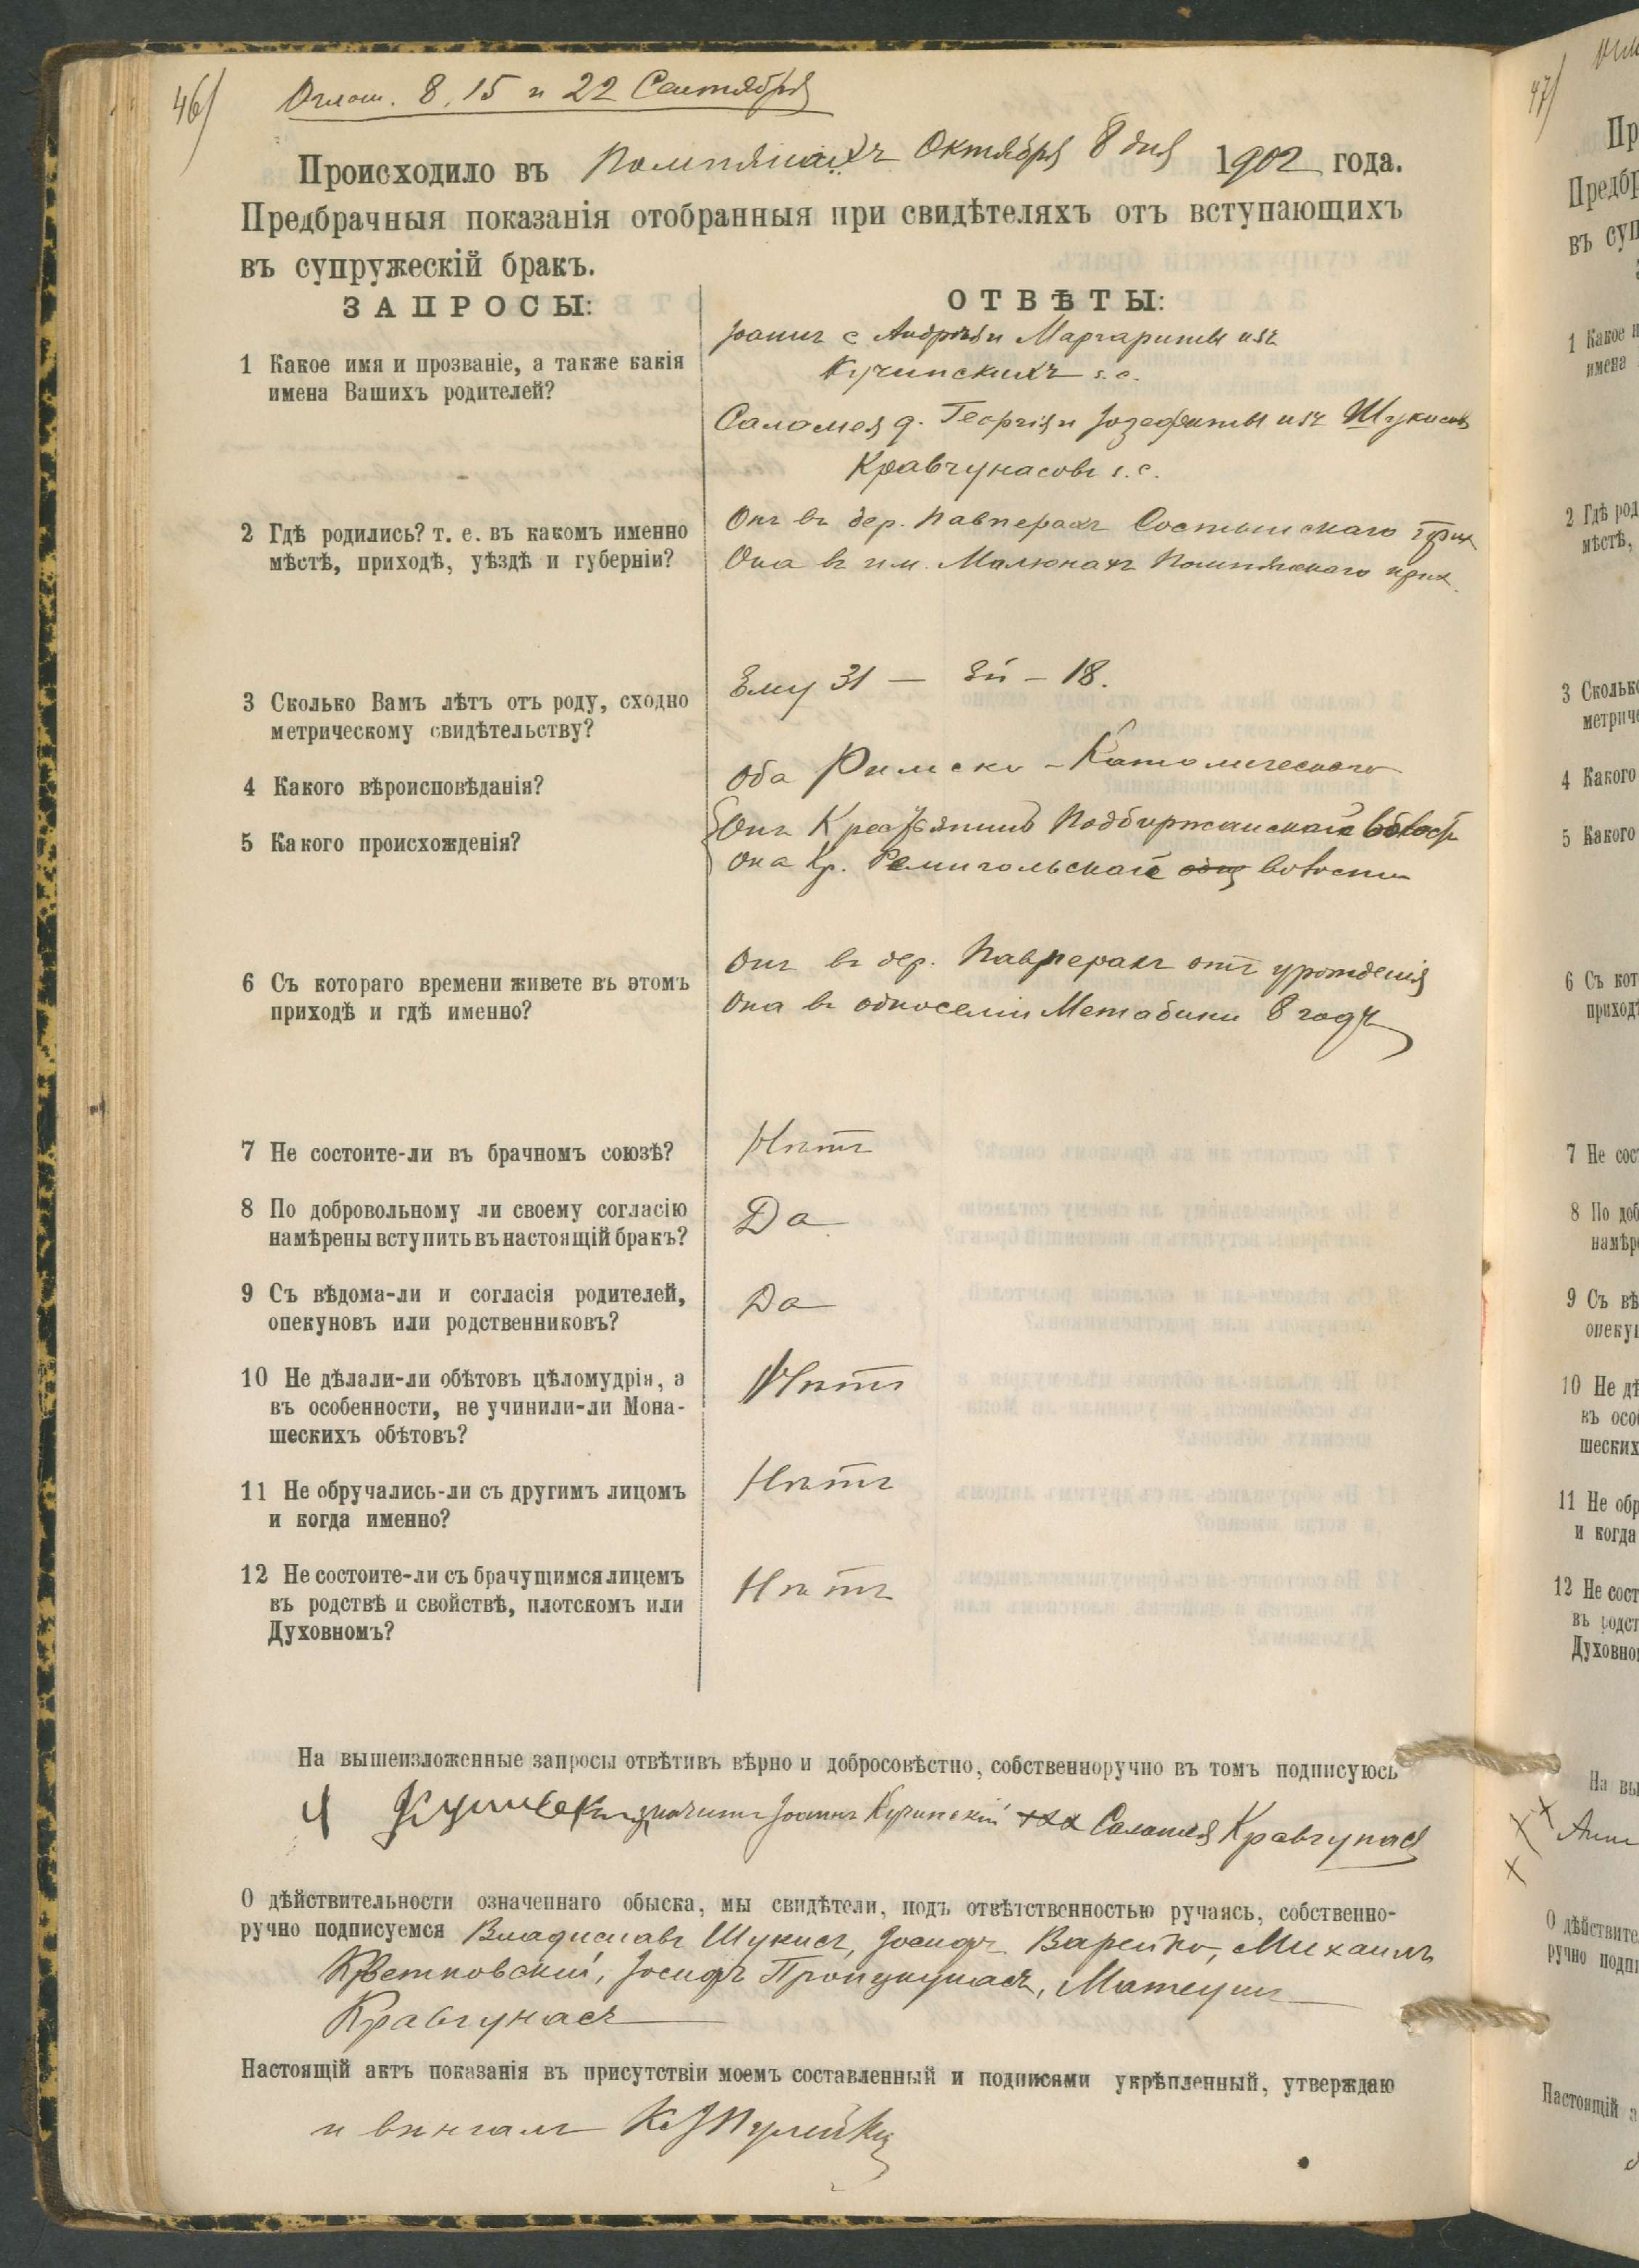 46/ Оглаш. 8, 15 и 22 Сентября
Происходило въ Помпянахъ Октября 8 дня 1902 года.
Предбрачныя показанія отобранныя при свидѣтеляхъ отъ вступающихъ
въ супружескій бракъ.
ЗАПРОСЫ:
1 Какое имя и прозваніе, а также какія
имена Вашихъ родителей?
2 Гдѣ родились? т. е. въ какомъ именно
мѣстѣ, приходѣ, уѣздѣ и губерніи?
3 Сколько Вамъ лѣтъ отъ роду, сходно
метрическому свидѣтельству?
4 Какого вѣроисповѣданія?
5 Какого происхожденія?
6 Съ котораго времени живете въ этомъ
приходѣ и гдѣ именно?
7 Не состоите-ли въ брачномъ союзѣ?
8 По добровольному ли своему согласію
намѣрены вступить въ настоящій бракъ?
9 Съ вѣдома-ли и согласія родителей,
опекуновъ или родственниковъ?
10 Не дѣлали-ли обѣтовъ цѣломудрія, а
въ особенности, не учинили-ли Мона-
шескихъ обѣтовъ?
11 Не обручались-ли съ другимъ лицомъ
и когда именно?
12 Не состоите-ли съ брачущимся лицемъ
въ родствѣ и свойствѣ, плотскомъ или
Духовномъ?
ОТВѢТЫ:
Іоаннъ с Андрея и Маргариты изъ
Кучинскихъ s. c.
Саломея д. Георгія и Іозефаты изъ Шукисовъ
Кравчунасовъ s. c.
Онъ въ дер. Павперахъ прих
Она въ им. Малюнахъ Помпянскаго прих.
Ему 31 — Ей – 18.
Оба Римско-Католическаго
Онъ Крестьянинъ Подбиржанской волост
Она Кр. Ремигольской волости
Онъ въ дер. Павперахъ отъ урожденія
Она въ односеліи Метабики 8 годъ
Нѣтъ
Да
Да
Нѣтъ
Нѣтъ
Нѣтъ
На вышеизложенные запросы отвѣтивъ вѣрно и добросовѣстно, собственноручно въ томъ подписуюсь
значитъ Іоаннъ Кучинскій ххх Саломея Кравчунас
О дѣйствительности означеннаго обыска, мы свидѣтели, подъ отвѣтственностью ручаясь, собственно-
ручно подписуемся Владиславъ Шукисъ, Іосифъ Варейко, Михаилъ
Кветковскій, Іосифъ Пронцкунасъ, Матеушъ
Кравчунасъ
Настоящій актъ показанія въ присутствіи моемъ составленный и подписями укрѣпленный, утверждаю
и вѣнчалъ
47/
Пр
Предбр
въ суп
1 Какое и
имена
2 Гдѣ род
мѣстѣ,
3 Сколько
метриче
4 Какого
5 Какого
6 Съ кот
приходѣ
7 Не сос
8 По доб
намѣр
9 Съ вѣ
опекун
10 Не дѣ
въ осо
шеских
11 Не обр
и когда
12 Не сост
въ родст
Духовно
На вы
О дѣйствите
ручно подпи
Настоящій а